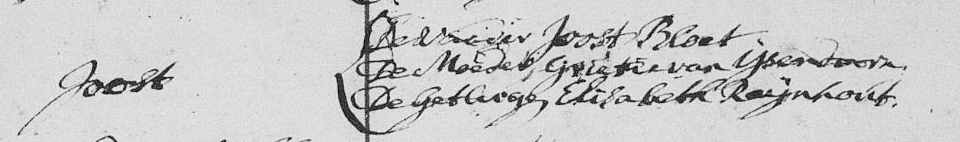 Joost
De Vaeder Joost Bloet.
De Moeder, Grietie van Ysendoorn.
De Getuige, Elisabeth Ruijnhout.